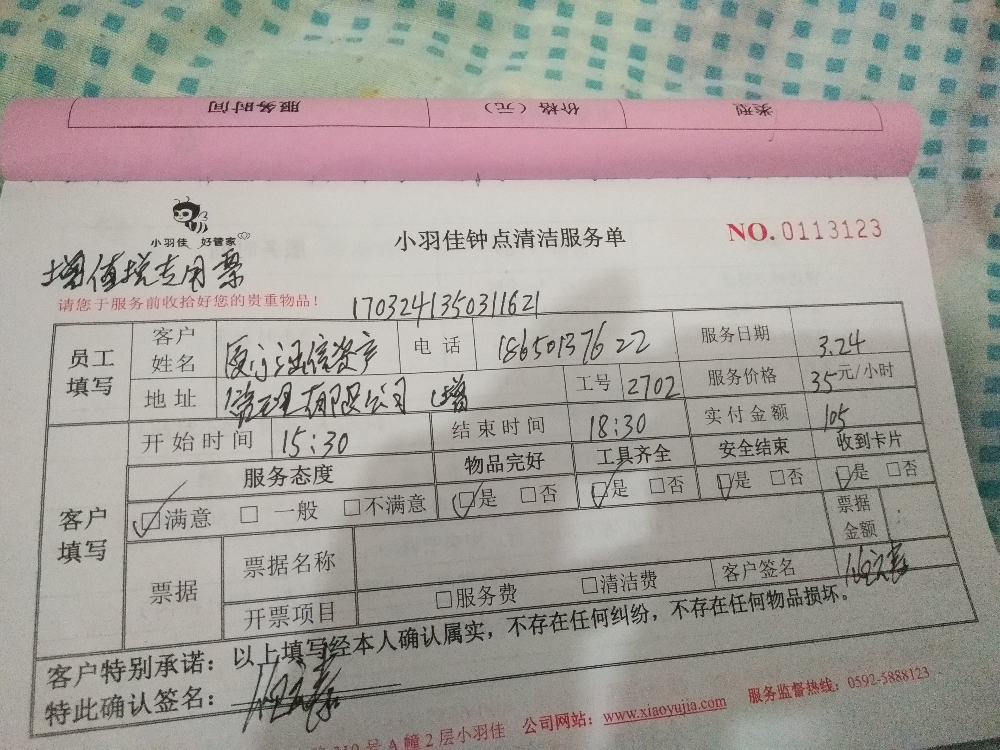 服务时间 价格（元） 类型
小羽佳 好管家
小羽佳钟点清洁服务单
NO. 0113123
增值税专用票
请您于服务前收拾好您的贵重物品！
1703241350311621
员工填写 客户姓名 厦门涵信资产 电话 18650137622 服务日期 3.24
地址 管理有限公司 工号 2702 服务价格 35元/小时
客户填写 开始时间 15:30 结束时间 18:30 实付金额 105
服务态度 物品完好 工具齐全 安全结束 收到卡片
☑满意 □一般 □不满意 ☑是 □否 ☑是 □否 ☑是 □否 ☑是 □否
票据 票据名称 票据金额
开票项目 □服务费 □清洁费 客户签名
客户特别承诺：以上填写经本人确认属实，不存在任何纠纷，不存在任何物品损坏。
特此确认签名：
号A幢2层小羽佳 公司网站：www.xiaoyujia.com 服务监督热线：0592-5888123